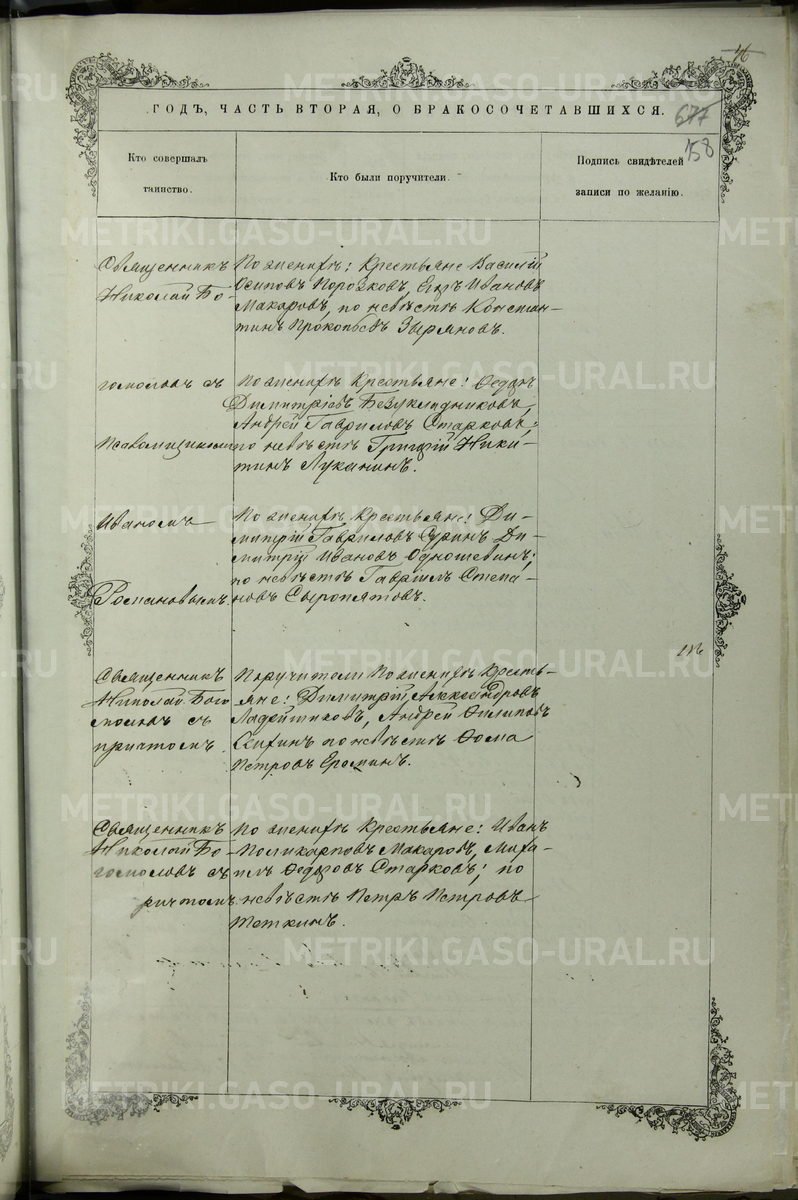 46
ГОДЪ, ЧАСТЬ ВТОРАЯ, О БРАКОСОЧЕТАВШИХСЯ.
677
158
Кто совершалъ
таинство.
Кто были поручители.
Подпись свидѣтелей
записи по желанію.
Священникъ
Николай Бо-
гомоловъ съ
Псаломщикомъ
Иваномъ
Романовымъ
По женихѣ: Крестьяне Василій
Осиповъ Порозковъ, Егоръ Ивановъ
Макаровъ, по невѣстѣ Констан-
тинъ Прокопьевъ Зыряновъ.
По женихѣ Крестьяне: Ѳедоръ
Димитріевъ Безукладниковъ,
Андрей Гавриловъ Старковъ;
по невѣстѣ Григорій Ники-
тинъ Луканинъ.
По женихѣ Крестьяне: Ди-
митрій Гавриловъ Ди-
митрій Ивановъ Одношевинъ;
по невѣстѣ Гавріилъ Степа-
новъ Сыропятовъ.
Священникъ
Николай Бого
моловъ съ
причтомъ
Поручители По женихѣ Кресть-
яне: Димитрій Александровъ
Ладейщиковъ, Андрей Филиповъ
по невѣстѣ Ѳома
Петровъ Ероминъ.
Священникъ
Николай Бо-
гомоловъ съ
ричтомъ
По женихѣ Крестьяне: Иванъ
Поликарповъ Макаровъ, Миха-
илъ Ѳедоровъ Старковъ; по
невѣстѣ Петръ Петровъ
Теткинъ.
METRIKI.GASO-URAL.RU